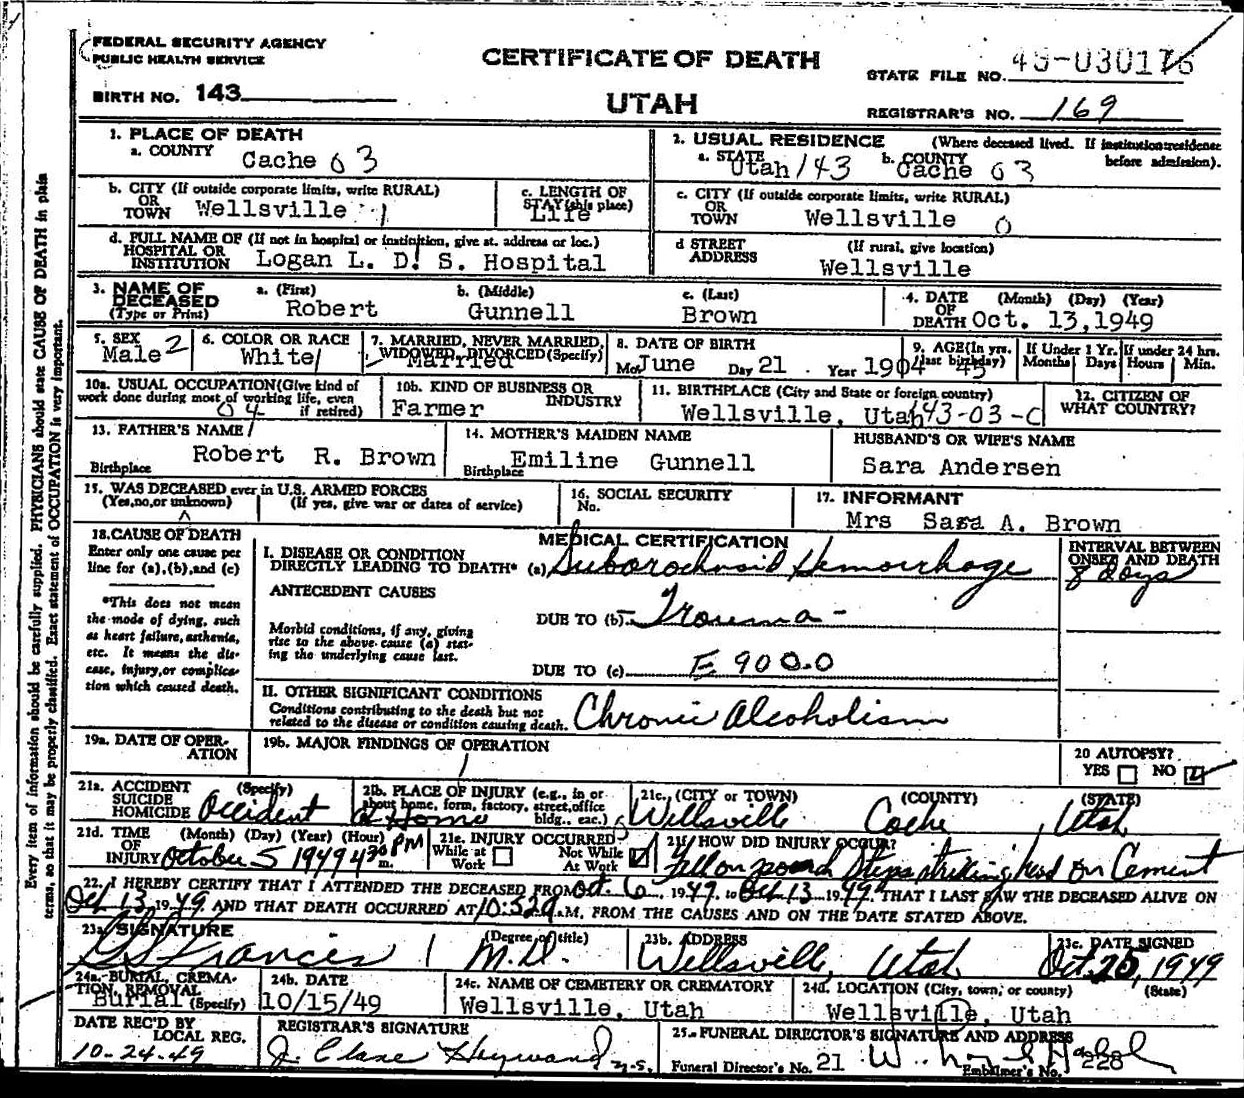 FEDERAL SECURITY AGENCY
PUBLIC HEALTH SERVICE
CERTIFICATE OF DEATH
STATE FILE NO. 49-030176
BIRTH NO. 143
UTAH
REGISTRAR'S NO. 169
Every item of information should be carefully supplied. PHYSICIANS should state CAUSE OF DEATH in plain
terms, so that it may be properly classified. Exact statement of OCCUPATION is very important.
1. PLACE OF DEATH
a. COUNTY Cache 03
2. USUAL RESIDENCE (Where deceased lived. If institution: residence
before admission).
a. STATE Utah 143 b. COUNTY Cache 03
b. CITY (If outside corporate limits, write RURAL)
OR
TOWN Wellsville 1
c. LENGTH OF
STAY (this place)
Life
c. CITY (If outside corporate limits, write RURAL)
OR
TOWN Wellsville 0
d. FULL NAME OF (If not in hospital or institution, give st. address or loc.)
HOSPITAL OR
INSTITUTION Logan L. D. S. Hospital
d STREET (If rural, give location)
ADDRESS Wellsville
3. NAME OF
DECEASED
(Type or Print)
a. (First) Robert
b. (Middle) Gunnell
c. (Last) Brown
4. DATE (Month) (Day) (Year)
OF
DEATH Oct. 13,1949
5. SEX
Male 2
6. COLOR OR RACE
White 1
7. MARRIED, NEVER MARRIED,
WIDOWED, DIVORCED (Specify)
Married
8. DATE OF BIRTH
Mo. June Day 21 . Year 1904
9. AGE (In yrs.
last birthday)
45
If Under 1 Yr.
Months Days
If under 24 hrs.
Hours Min.
10a. USUAL OCCUPATION (Give kind of
work done during most of working life, even
if retired)
04
10b. KIND OF BUSINESS OR
INDUSTRY
Farmer
11. BIRTHPLACE (City and State or foreign country)
Wellsville, Utah 43-03-C
12. CITIZEN OF
WHAT COUNTRY?
13. FATHER'S NAME
Robert R. Brown
Birthplace
14. MOTHER'S MAIDEN NAME
Emiline Gunnell
Birthplace
HUSBAND'S OR WIFE'S NAME
Sara Andersen
15. WAS DECEASED ever in U.S. ARMED FORCES
(Yes, no, or unknown) (If yes, give war or dates of service)
16. SOCIAL SECURITY
No.
17. INFORMANT
Mrs Sara A. Brown
18. CAUSE OF DEATH
Enter only one cause per
line for (a), (b), and (c)
*This does not mean
the mode of dying, such
as heart failure, asthenia,
etc. It means the dis-
ease, injury, or complica-
tion which caused death.
MEDICAL CERTIFICATION
I. DISEASE OR CONDITION
DIRECTLY LEADING TO DEATH* (a) Subarachnoid Hemorrhage
INTERVAL BETWEEN
ONSET AND DEATH
8 days
ANTECEDENT CAUSES
DUE TO (b) Trauma -
Morbid conditions, if any, giving
rise to the above cause (a) stat-
ing the underlying cause last.
DUE TO (c) E 900.0
II. OTHER SIGNIFICANT CONDITIONS
Conditions contributing to the death but not
related to the disease or condition causing death.
Chronic Alcoholism
19a. DATE OF OPER-
ATION
19b. MAJOR FINDINGS OF OPERATION
20 AUTOPSY?
YES NO
21a. ACCIDENT (Specify)
SUICIDE
HOMICIDE Accident
21b. PLACE OF INJURY (e.g., in or
about home, farm, factory, street, office
bldg., eac.)
at Home
21c. (CITY or TOWN) (COUNTY) (STATE)
Wellsville Cache Utah
21d. TIME (Month) (Day) (Year) (Hour)
OF
INJURY October 5 1949 4:30 PM m.
21e. INJURY OCCURRED
While at Work Not While At Work
21f. HOW DID INJURY OCCUR?
Fell on porch Steps striking head on Cement
22. I HEREBY CERTIFY THAT I ATTENDED THE DECEASED FROM Oct. 6, 1949, to Oct 13, 1949, THAT I LAST SAW THE DECEASED ALIVE ON
Oct 13, 1949. AND THAT DEATH OCCURRED AT 10:52 a.M., FROM THE CAUSES AND ON THE DATE STATED ABOVE.
23a. SIGNATURE (Degree or title)
Francis M.D.
23b. ADDRESS
Wellsville, Utah
23c. DATE SIGNED
Oct. 25, 1949
24a. BURIAL, CREMA-
TION, REMOVAL
Burial (Specify)
24b. DATE
10/15/49
24c. NAME OF CEMETERY OR CREMATORY
Wellsville, Utah
24d. LOCATION (City, town, or county) (State)
Wellsville, Utah
DATE REC'D BY
LOCAL REG.
10-24-49
REGISTRAR'S SIGNATURE
J. Clare Hayward
25. FUNERAL DIRECTOR'S SIGNATURE AND ADDRESS
Funeral Director's No. 21
Embalmer's No. 228